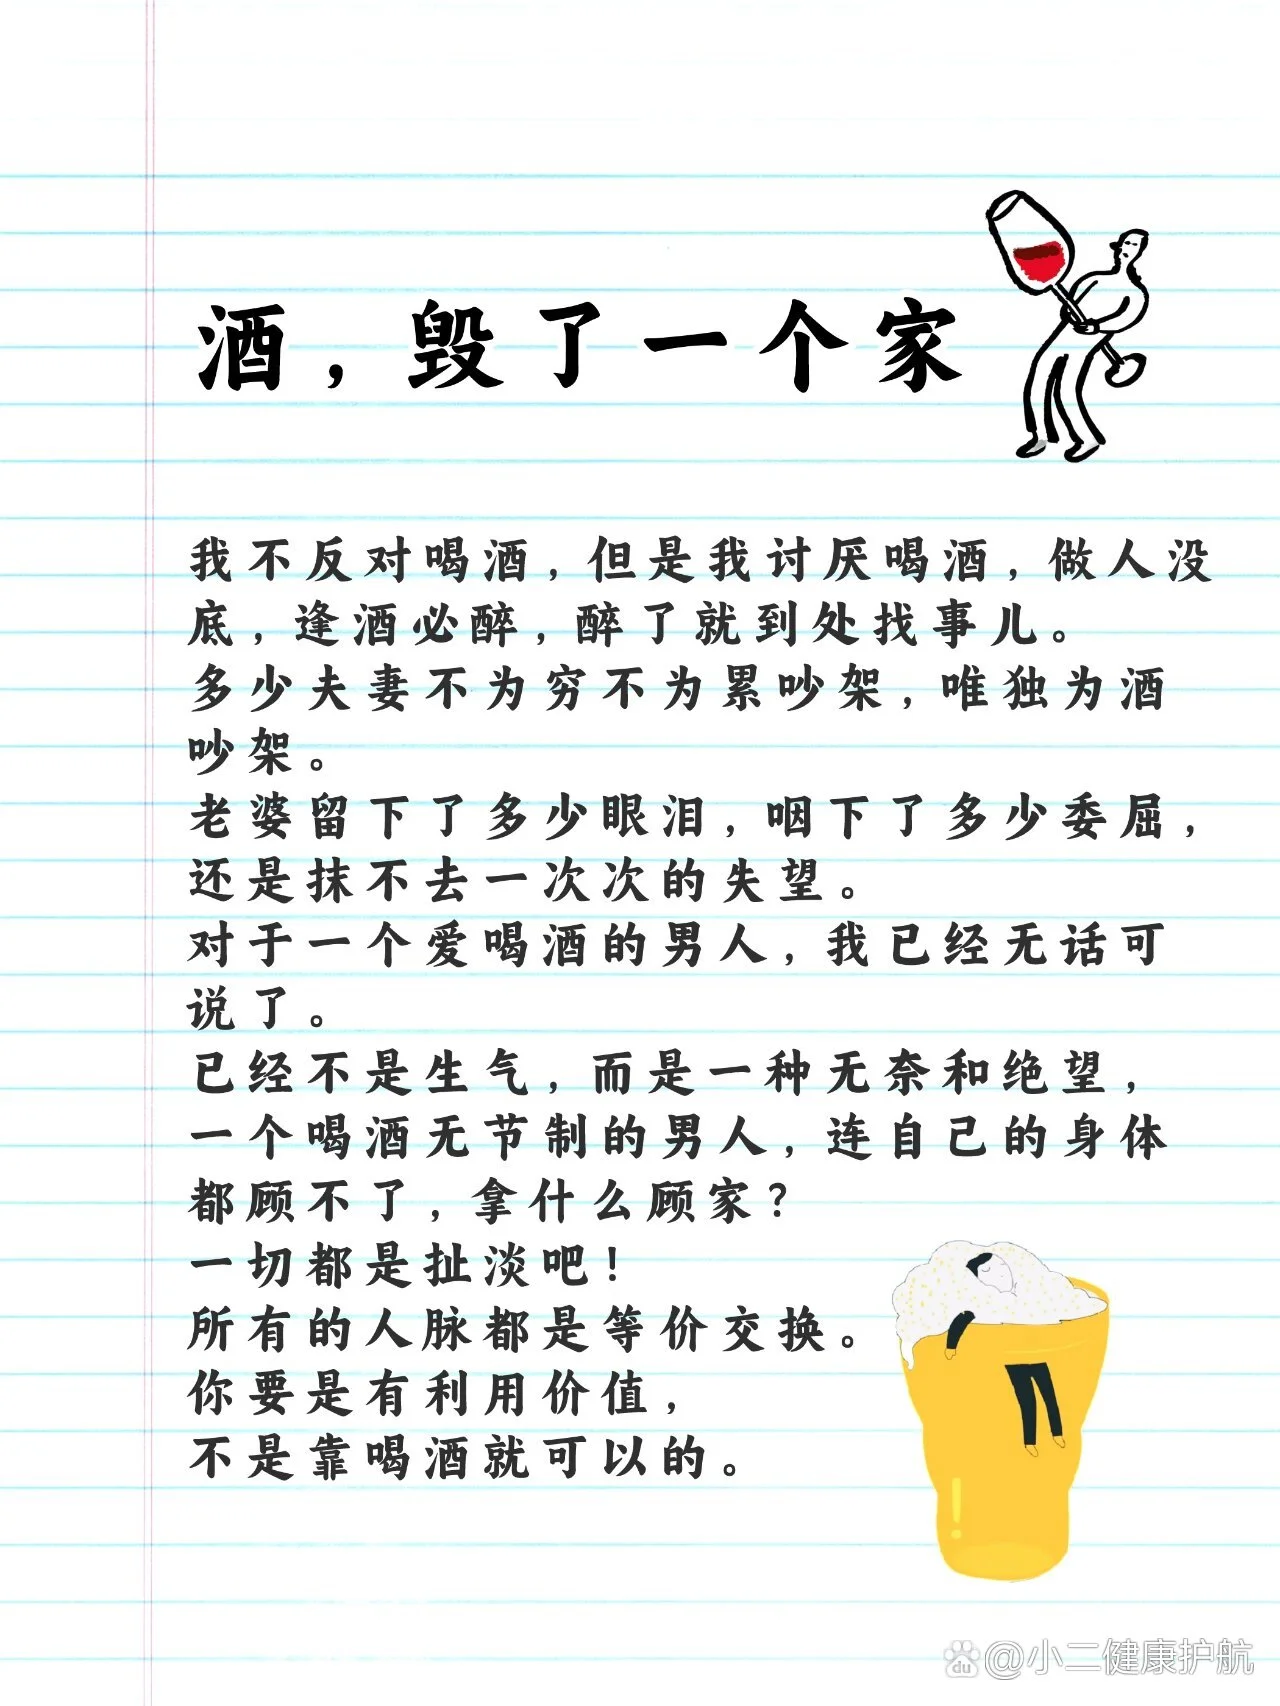 酒，毁了一个家
我不反对喝酒，但是我讨厌喝酒，做人没
底，逢酒必醉，醉了就到处找事儿。
多少夫妻不为穷不为累吵架，唯独为酒
吵架。
老婆留下了多少眼泪，咽下了多少委屈，
还是抹不去一次次的失望。
对于一个爱喝酒的男人，我已经无话可
说了。
已经不是生气，而是一种无奈和绝望，
一个喝酒无节制的男人，连自己的身体
都顾不了，拿什么顾家？
一切都是扯淡吧！
所有的人脉都是等价交换。
你要是有利用价值，
不是靠喝酒就可以的。
du @小二健康护航